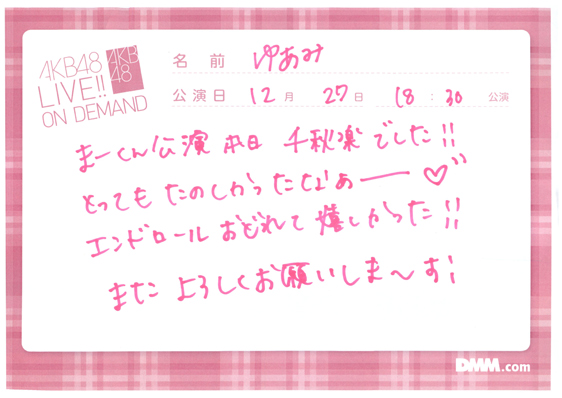 AKB48
LIVE!!
ON DEMAND
AKB
48
名前 ゆあみ
公演日 12月 27日 18:30 公演
まーくん公演 本日 千秋楽でした!!
とっても たのしかったなぁー♡''
エンドロール おどれて 嬉しかった!!
また よろしくお願いしま〜す!
DMM.com